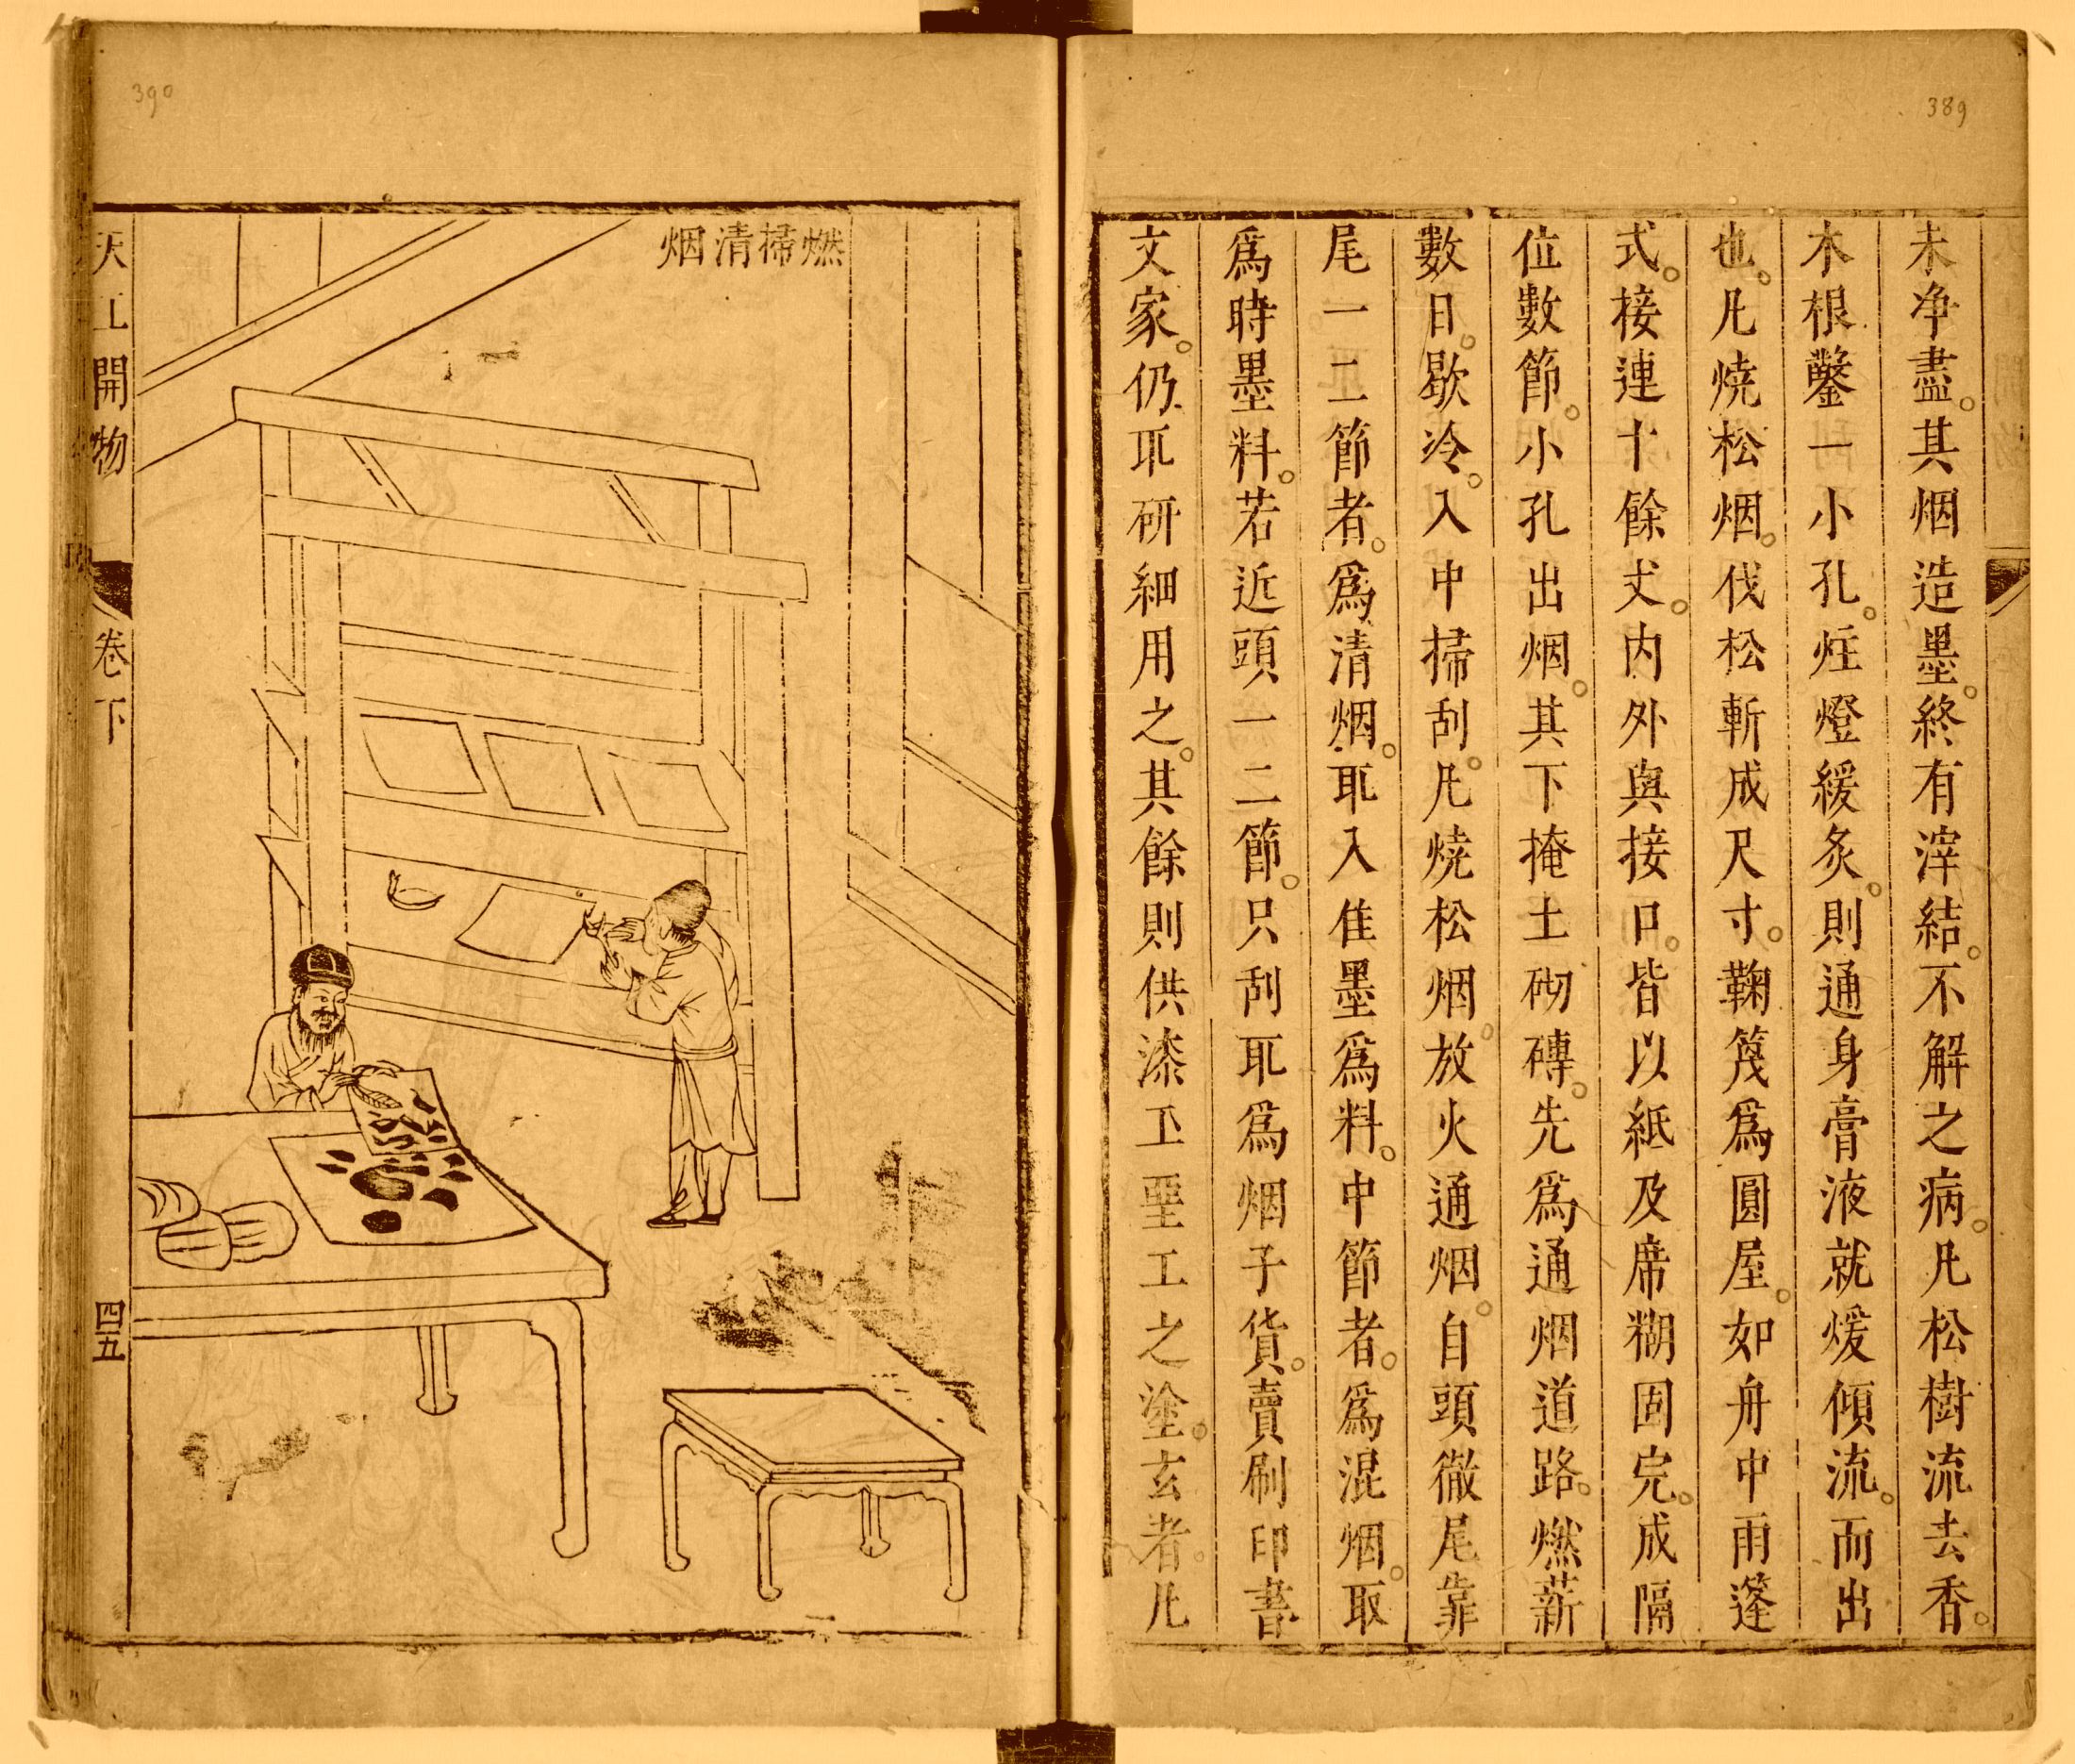 389
未净盡。其烟造墨。終有滓結。不解之病。凡松樹流去香。
木根鑿一小孔。炷燈緩炙。則通身膏液就煖傾流。而出
也。凡燒松烟。伐松斬成尺寸。鞠篾爲圓屋。如舟中雨篷
式。接連十餘丈。内外與接口。皆以紙及席糊固完。成隔
位數節。小孔出烟。其下掩土砌磚。先爲通烟道路。燃薪
數日。歇冷。入中掃刮。凡燒松烟。放火通烟。自頭徹尾靠
尾一二節者。爲清烟。取入佳墨爲料。中節者。爲混烟。取
爲時墨料。若近頭一二節。只刮取爲烟子貨。賣刷印書
文家。仍取研細用之。其餘則供漆工堊工之塗。玄者。凡
390
燃掃清烟
天工開物
卷下
四五